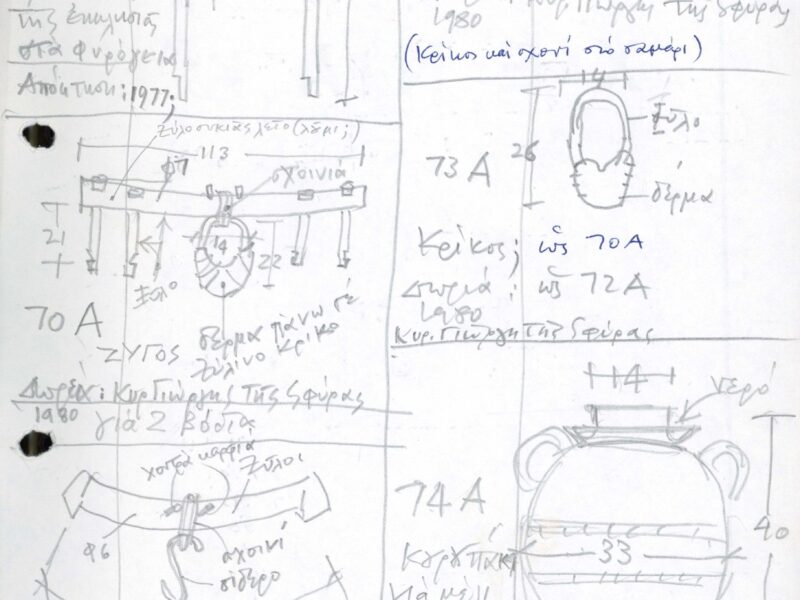 της εκκλησιάς
στα Φυρόγεια
Απόκτηση: 1977;
ξύλο συκιάς λείο (
113
φ7
σχοινιά
21
14
22
ξύλο
70 Α
ΖΥΓΟΣ
δέρμα πάνω σέ
ξύλινο κρίκο
Δωρεά: Κυρ Γιώργης της Σφύρας
1980
γιά 2 βόδια
χοντρά καρφιά
ξύλοι
φ6
σχοινί
σίδερο
Κυρ. Γιώργη της Σφύρας
1980
(Κρίκος και σχοινί στό σαμάρι)
14
26
ξύλο
δέρμα
73 Α
Κρίκος; ὡς 70Α
Δωριά: ὡς 72Α
1980
Κυρ. Γιώργη της Σφύρας
14
νερό
74 Α
40
33
γιά μέλι